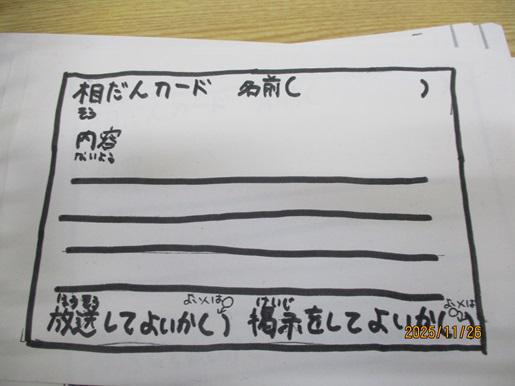 相だんカード 名前( )
そう
内容
ないよう
ほうそう よい人は○ けいじ よい人は○
放送してよいか( ) 掲示をしてよいか(
2025/11/26